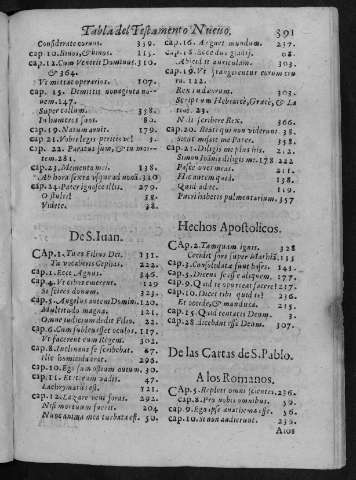 Tabla del Testamento Nueuo. 391
Considerate coruos. 359.
cap. 10. Sinos, & sinus. 115.
cap. 12. Cum Ventis Dominus. 310
& 364.
Vt mittat operarios. 107.
cap. 15. Dimittis nonaginta no-
uem. 147.
Super collum. 358.
Tribuentes sunt. 80.
cap. 19. Natum annit. 179.
cap. 21.
mortem. 281.
cap. 23. Memento mei. 138.
Ab hora sexta vsque ad nonã. 310
cap. 24. Pater ignosce illis. 279.
Ostulit 58.
Videte. 38.
De S. Iuan.
Cap. 1. Tu es Filius Dei. 131.
Tu vocaberis Cephas. 222.
cap. 1. Ecce Agnus. 346.
cap. 4. Vt cibos emerent. 129
Si scires donum. 323.
cap. 5. Angelus autem Domin. 120.
Multitudo magna. 121.
Omne iudicium dedit Filio. 22.
cap. 6. Cum subleuasset oculos. 117.
Vt facerent eum Regem. 302.
cap. 8. Inclinans se scribebat. 67.
296.
cap. 10. Ego sum ostium autem. 30.
cap. 11. Et iterum vadis. 47.
Lachrymatus est. 121.
cap. 12. Lazare veni foras. 292.
Nisi mortuum fuerit. 204
Nunc anima mea turbata est. 50
cap. 16. Arguet mundum. 237.
cap. 18. Ecce duo gladij. 68.
Abscidit auriculam. 303.
cap. 19. Vt frangerentur eorum cru-
ra. 122.
Rex Iudæorum. 303.
Scriptum Hebraicè, Græcè, & La
tinè. 23.
Noli scribere Rex. 366.
cap. 20. Beati qui non viderunt. 38.
Sicut misit me Pater. 358.
cap. 21. Diligis me plus his. 212.
Simon Ioãnis diligis me. 178 222
Pasce oues meas. 211.
Hic autem quid. 138.
Quid ad te. 119.
Piscibus pulmentarium. 357
Hechos Apostolicos.
CAp. 2. Tamquam ignis. 328
Cecidit sors super Mathiã. 115
cap. 3. Consolidatæ sunt bases. 141.
cap. 5. Dicens se esse aliquem. 177.
cap. 9. Quid te oportet facere? 217.
cap. 10. Dicet tibi quid te? 236.
Et occide, & manduca. 215.
cap. 15. Quid tentatis Deum. 3.
cap. 28. dicebant esse Deum. 307.
De las Cartas de S. Pablo.
A los Romanos.
CAp. 5. Repleti omni scientia. 236.
cap. 8. Pro nobis omnibus. 50.
cap. 9. Ego ipse anathema esse. 56.
cap. 10. Si non audierunt 236.
A los